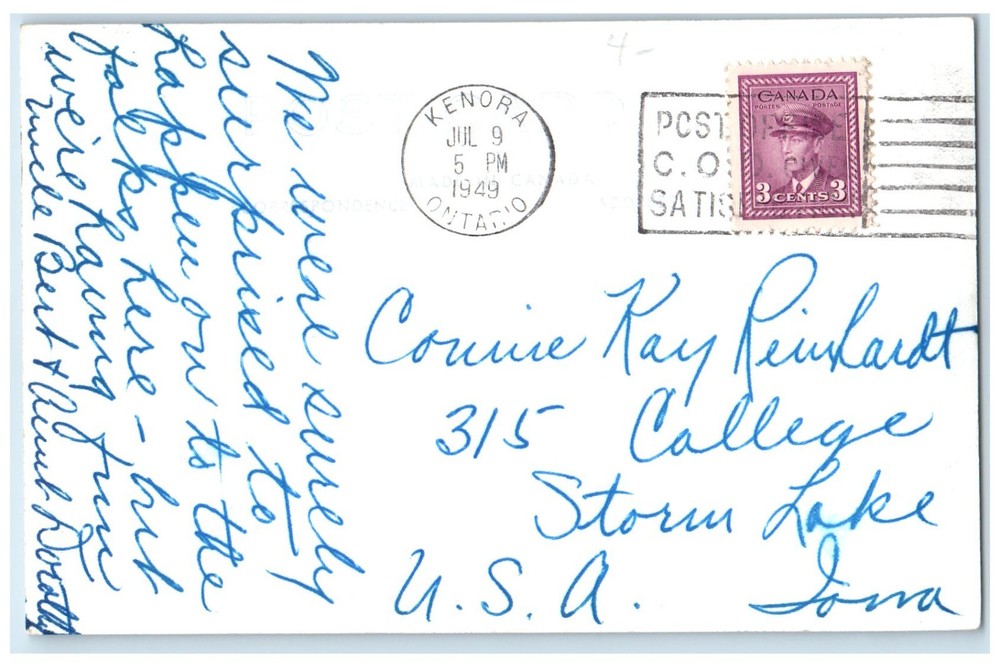 We were surely
surprised to
happen on to the
folks here - but
we're having fun
Uncle Bert & Aunt Dorothy
4-
KENORA
JUL 9
5 PM
1949
ONTARIO
POST
C.O.
SATIS
CANADA
POSTES POSTAGE
3 CENTS 3
MADE IN CANADA
CORRESPONDENCE
Connie Kay Reinhardt
315 College
Storm Lake
U.S.A. Iowa